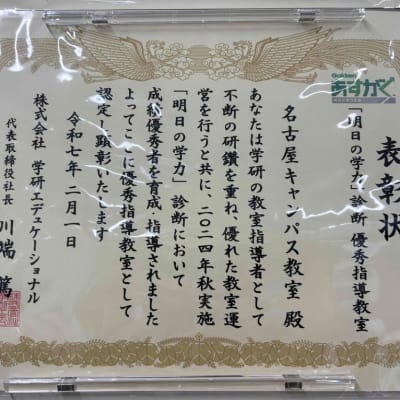 表彰状
Gakken
あすがく
「明日の学力」診断 優秀指導教室
名古屋キャンパス教室 殿
あなたは学研の教室指導者として
不断の研鑽を重ね、優れた教室運
営を行うと共に、二〇二四年秋実施
「明日の学力」診断において
成績優秀者を育成・指導されました
よってここに優秀指導教室として
認定し顕彰いたします
令和七年 二月一日
株式会社 学研エデュケーショナル
代表取締役社長 川端 篤